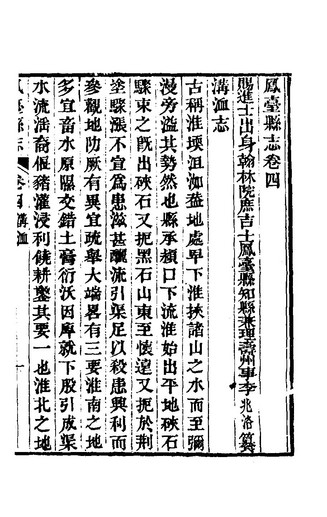 鳳臺縣志卷四
賜進士出身翰林院庶吉士鳳臺縣知縣兼理壽州事李兆洛纂
溝洫志
古稱淮壖沮洳蓋地處卑下淮挾諸山之水而至彌
漫旁溢其勢然也縣承潁口下流淮始出平地硤石
驟束之旣出硤石又扼黑石山東至懷遠又扼於荆
塗驟漲不宜爲患滋甚釃流引渠足以殺患興利而
參觀地防厥有異宜疏舉大端畧有三要淮南之地
多宜畜水原隰交錯土膏衍沃因庳就下股引成渠
水流潘裔偃豬灌浸利饒耕鑿其要一也淮北之地
鳳臺縣志 卷四 溝洫 一